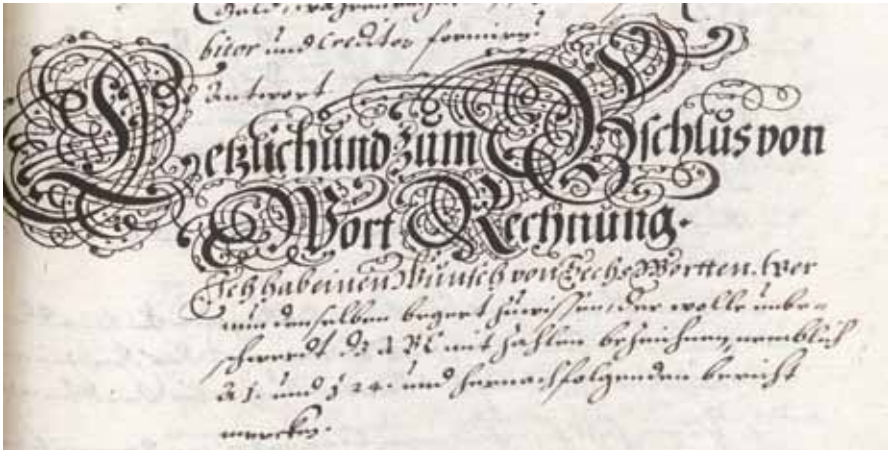 bitor und Creditor formirn
Antwort
Letzlich und zum Bschlus von
Wort Rechnung.
Ich hab einen Wunsch von Sechs Wortten. Wer
nun denselben begert zuwissen, der wolle unbe-
schwerdt dz ABC mit zahlen bezeichnen, nemblich
a 1. und z 24. und hernachfolgenden bericht
mercken.